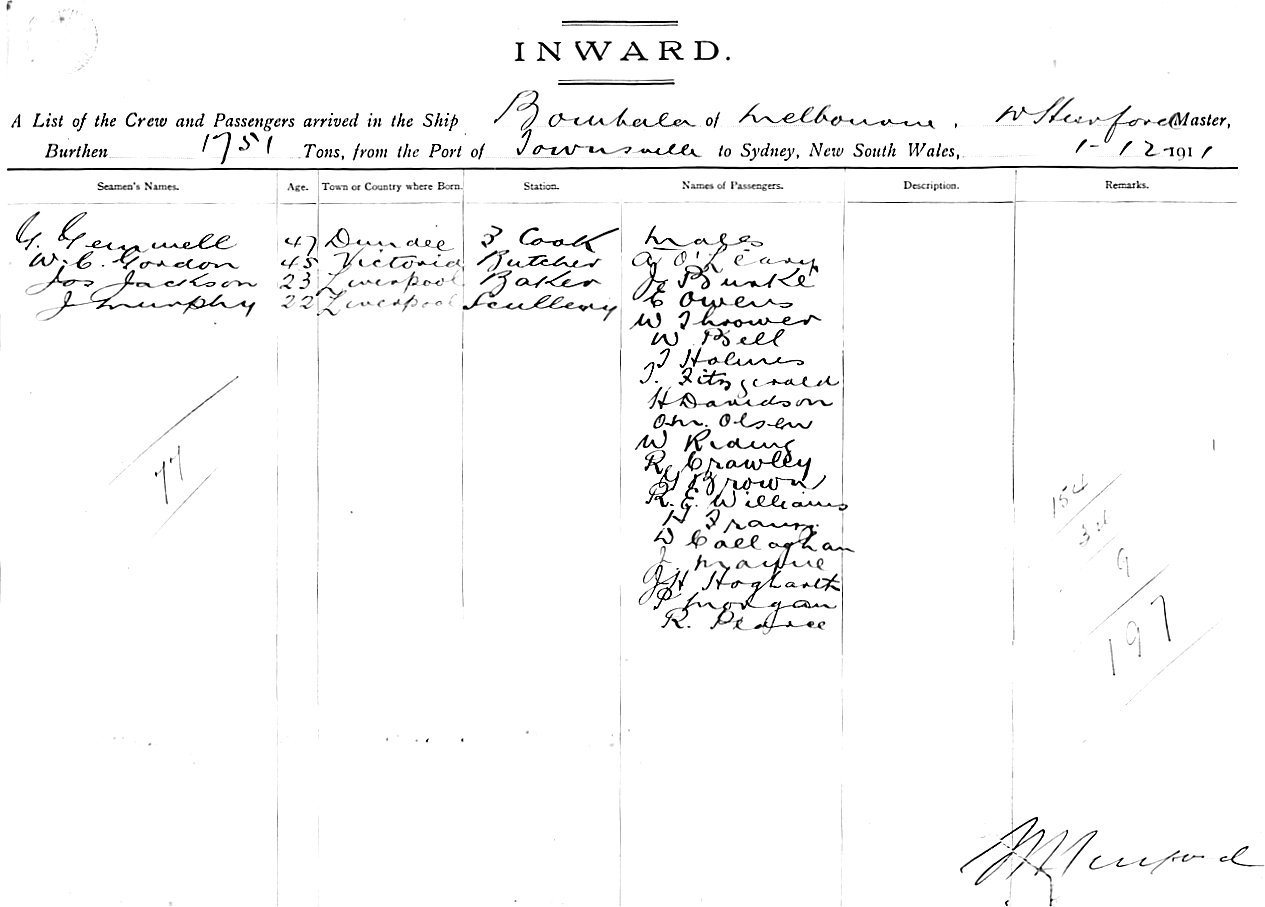 INWARD.
A List of the Crew and Passengers arrived in the Ship Bombala of Melbourne. Master,
Burthen 1751 Tons, from the Port of Townsville to Sydney, New South Wales, 1-12-1911
Seamen's Names. Age. Town or Country where Born. Station. Names of Passengers. Description. Remarks.
G. Gemmell 47 Dundee 3 Cook Males
W. C. Gordon 45 Victoria Butcher A O'Leary
Jos Jackson 23 Liverpool Baker J Burke
J Murphy 22 Liverpool Scullery C Owens
W Thrower
W Bell
T Holmes
T. Fitzgerald
H Davidson
O.M. Olsen
W Riding
R Crawley
G Brown
R. E. Williams
H
W Callaghan
J. Mayne
J H Hogharth
P Morgan
R. Pearce
77
154
34
9
197